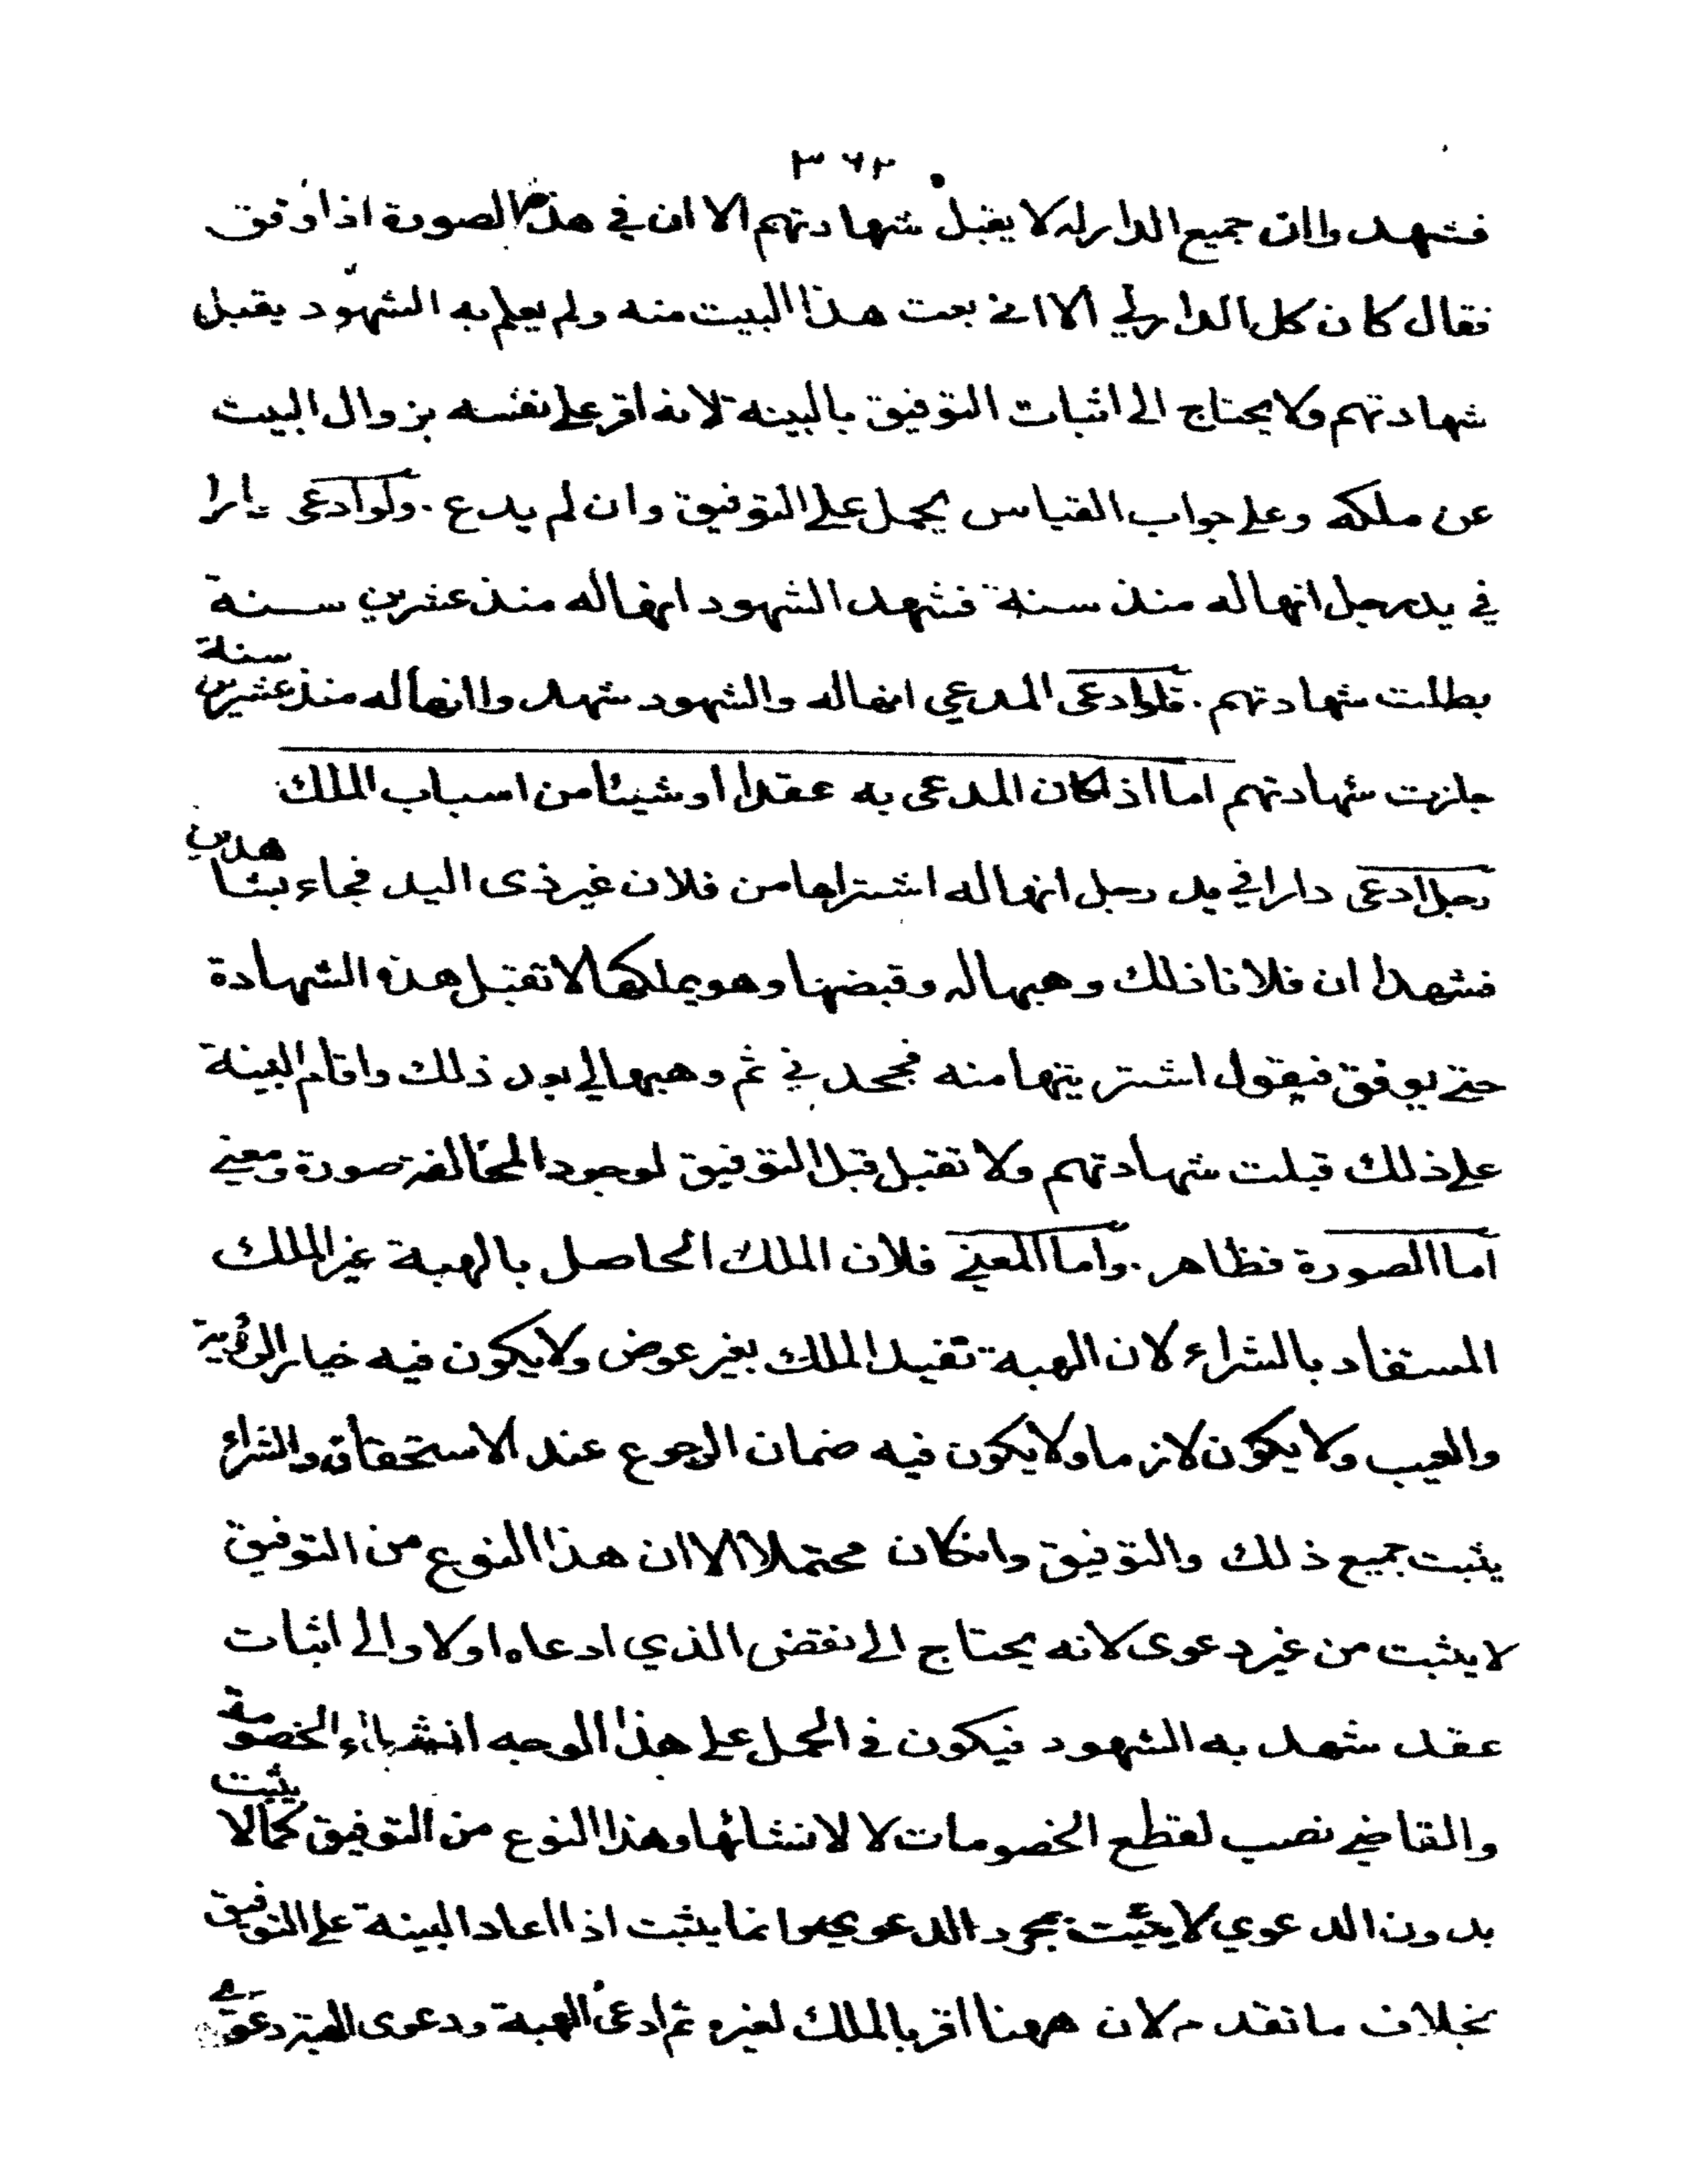 ٣٦٢
فشهدوا ان جميع الدار له لا يقبل شهادتهم الا ان في هذه الصورة اذا وفق
فقال كان كل الدار لي الا اني بعت هذا البيت منه ولم يعلم به الشهود يقبل
شهادتهم ولا يحتاج الى اثبات التوفيق بالبينة لانه اقر على نفسه بزوال البيت
عن ملكه وعلى جواب القياس يحمل على التوفيق وان لم يدع . ولو ادعى دارا
في يد رجل انها له منذ سنة فشهد الشهود انها له منذ عشرين سنة
بطلت شهادتهم . فلو ادعى المدعي انها له والشهود شهدوا انها له منذ عشرين سنة
جازت شهادتهم اما اذا كان المدعى به عقدا او شيئا من اسباب الملك
رجل ادعى دارا في يد رجل انها له اشتراها من فلان غير ذى اليد فجاء بشاهدين
فشهدا ان فلانا ذلك وهبها له وقبضها وهو يملكها لا تقبل هذه الشهادة
حتى يوفق فيقول اشتريتها منه فجحدني ثم وهبها لي بعد ذلك واقام البينة
على ذلك قبلت شهادتهم ولا تقبل قبل التوفيق لوجود المخالفة صورة ومعنى
اما الصورة فظاهر . واما المعنى فلان الملك الحاصل بالهبة غير الملك
المستفاد بالشراء لان الهبة تفيد الملك بغير عوض ولا يكون فيه خيار الرؤية
والعيب ولا يكون لازما ولا يكون فيه ضمان الرجوع عند الاستحقاق والشراء
يثبت جميع ذلك والتوفيق وانكان محتملا الا ان هذا النوع من التوفيق
لا يثبت من غير دعوى لانه يحتاج الى نقض الذي ادعاه اولا والى اثبات
عقد شهد به الشهود فيكون في الحمل على هذا الوجه انشاء الخصومة
والقاضي نصب لقطع الخصومات لا لانشائها وهذا النوع من التوفيق كما لا يثبت
بدون الدعوي لا يثبت بمجرد الدعوي وانما يثبت اذا اعاد البينة على التوفيق
بخلاف ما تقدم لان ههنا اقر بالملك لغيره ثم ادعى الهبة ودعوى الهبة دعوى